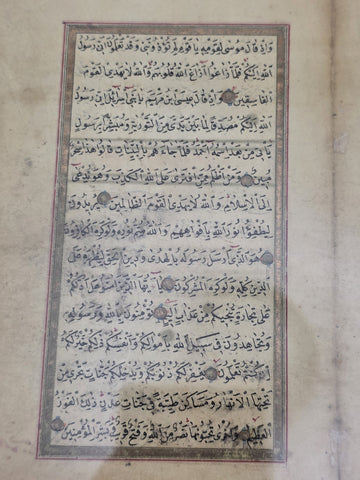 واذ قال موسى لقومه يا قوم لم تؤذونني وقد تعلمون انى رسول
الله اليكم فلما زاغوا ازاغ الله قلوبهم والله لا يهدى القوم
الفاسقين واذ قال عيسى ابن مريم يا بنى اسرائيل انى رسول
الله اليكم مصدقا لما بين يدى من التورية ومبشرا برسول
ياتى من بعدى اسمه احمد فلما جاءهم بالبينات قالوا هذا سحر
مبين ومن اظلم ممن افترى على الله الكذب وهو يدعى
الى الاسلام والله لا يهدى القوم الظالمين يريدون
ليطفؤا نور الله بافواههم والله متم نوره ولو كره الكافرون
هو الذى ارسل رسوله بالهدى ودين الحق ليظهره على
الدين كله ولو كره المشركون يا ايها الذين امنوا هل ادلكم
على تجارة تنجيكم من عذاب اليم تؤمنون بالله ورسوله
وتجاهدون فى سبيل الله باموالكم وانفسكم ذلكم خير لكم
ان كنتم تعلمون يغفر لكم ذنوبكم ويدخلكم جنات تجرى من
تحتها الانهار ومساكن طيبة فى جنات عدن ذلك الفوز
العظيم واخرى تحبونها نصر من الله وفتح قريب وبشر المؤمنين